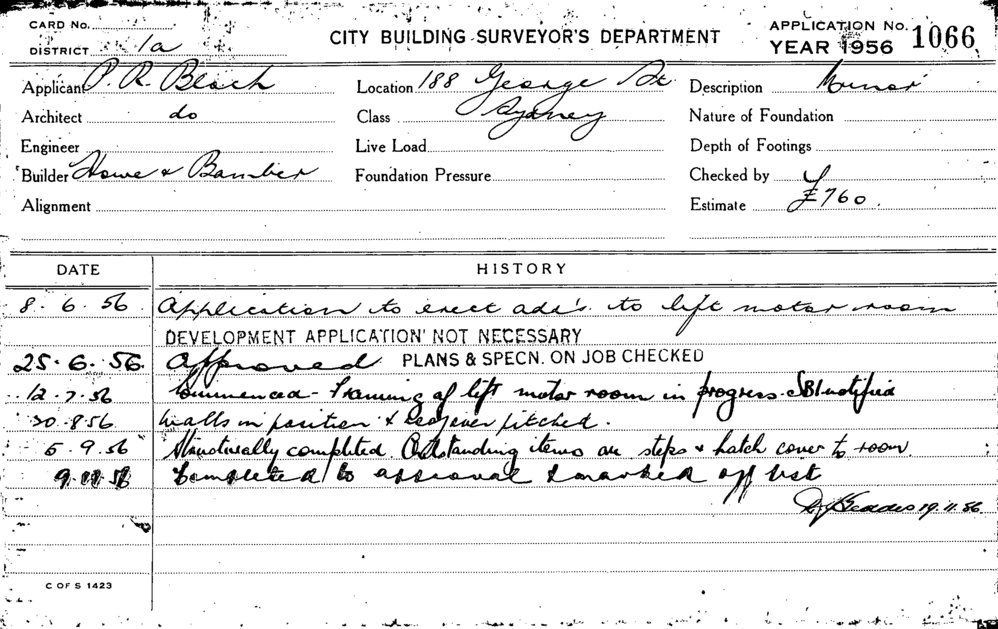 CARD No.
DISTRICT 1a
CITY BUILDING SURVEYOR'S DEPARTMENT
APPLICATION No. 1066
YEAR 1956
Applicant P. R. Bleach
Location 188 George St
Description Minor
Architect do
Class Sydney
Nature of Foundation
Engineer
Live Load
Depth of Footings
Builder Howe & Bamber
Foundation Pressure
Checked by
Alignment
Estimate £760.
DATE HISTORY
8.6.56 Application to erect adds. to lift motor room
DEVELOPMENT APPLICATION NOT NECESSARY
25.6.56. Approved PLANS & SPECN. ON JOB CHECKED
12.7.56 Commenced - Framing of lift motor room in progress. SBI notified
20.8.56 Walls in position & pitched.
5.9.56 Structurally completed. Outstanding items are steps & hatch cover to room.
56 Completed to approval & marked off list
19.11.56.
C OF S 1423